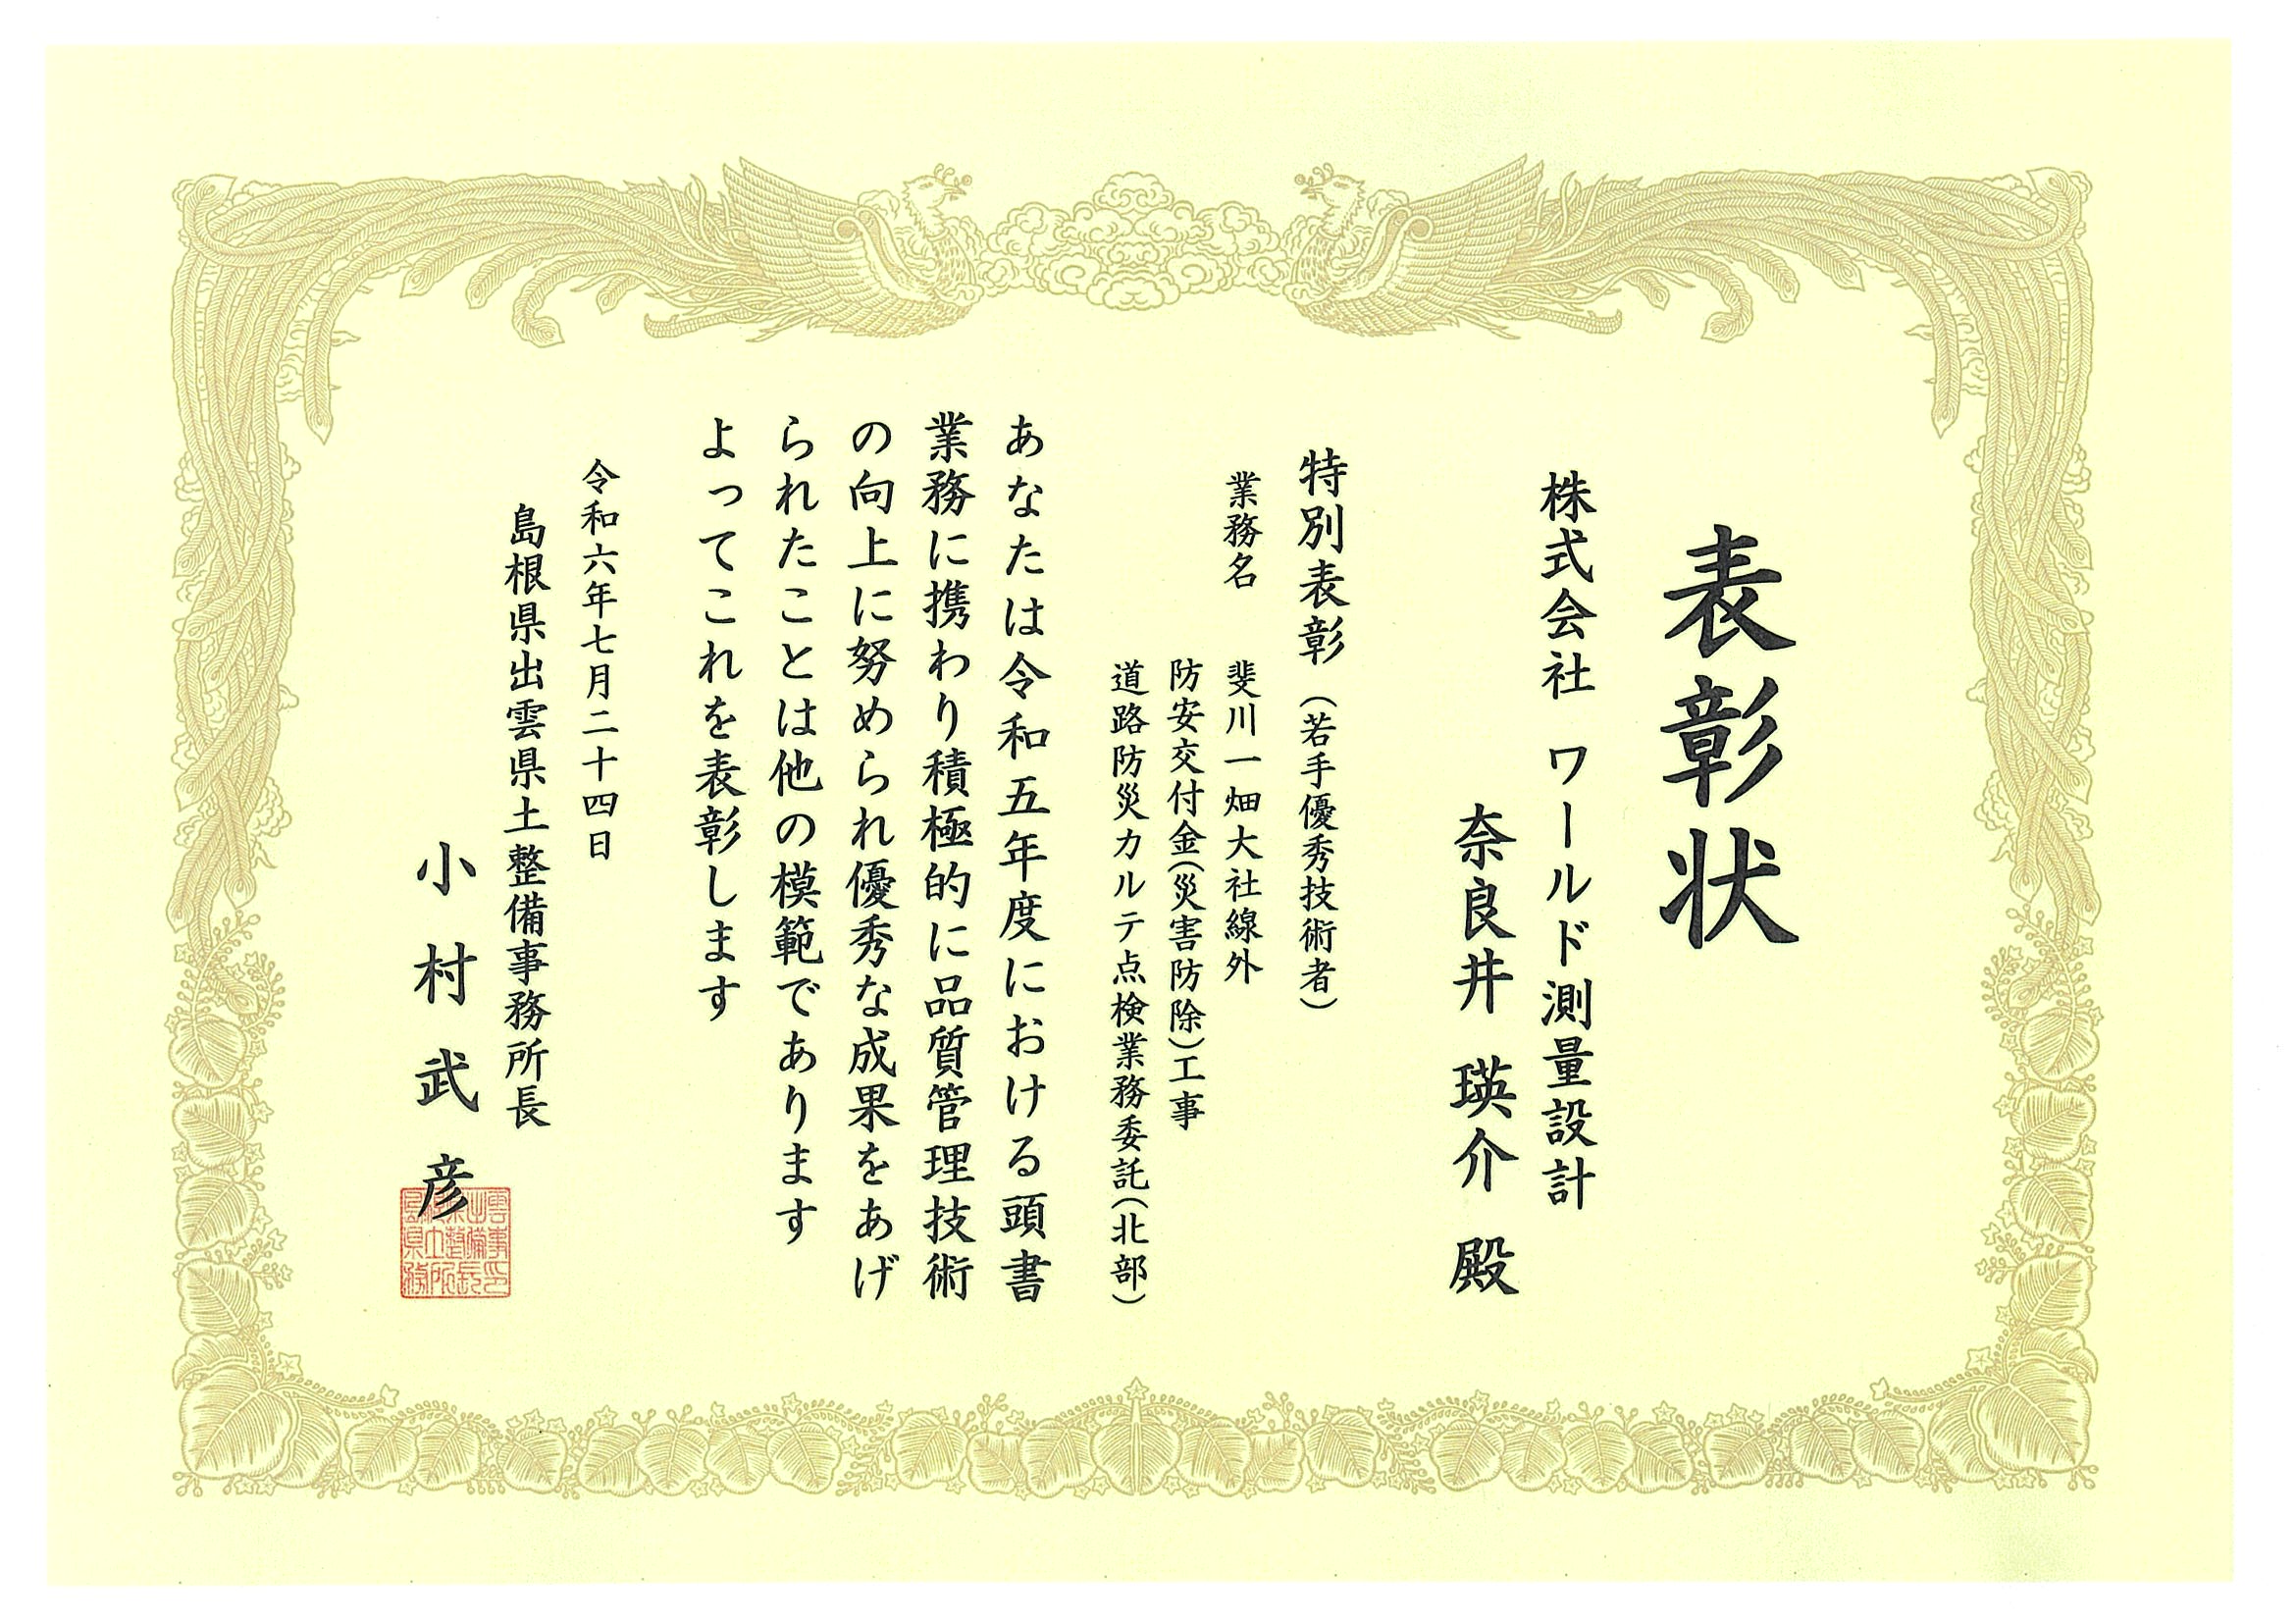 表彰状
株式会社 ワールド測量設計
奈良井 瑛介 殿
特別表彰（若手優秀技術者）
業務名 斐川一畑大社線外
防安交付金(災害防除)工事
道路防災カルテ点検業務委託(北部)
あなたは令和五年度における頭書
業務に携わり積極的に品質管理技術
の向上に努められ優秀な成果をあげ
られたことは他の模範であります
よってこれを表彰します
令和六年七月二十四日
島根県出雲県土整備事務所長
小村武彦